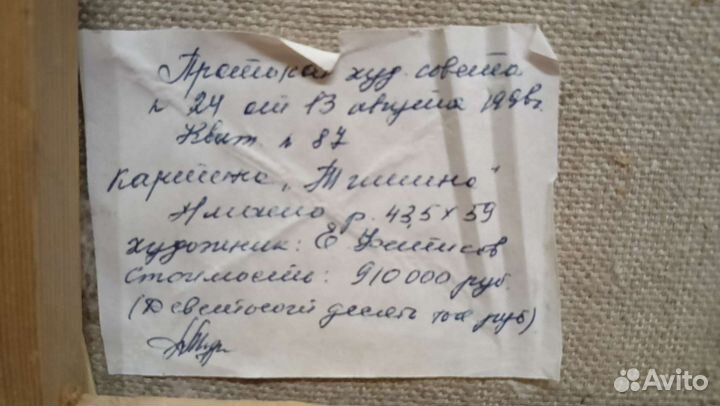 Протокол худ. совета
n 24 от 13 августа 199 г.
Квит. n 87
Картина „Тишина"
р. 43,5 х 59
художник: Е Фетисов
Стоимость: 910 000 руб.
(Девятьсот десять тыс руб)
Avito